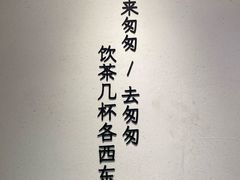 来匆匆 / 去匆匆
饮茶几杯各西东